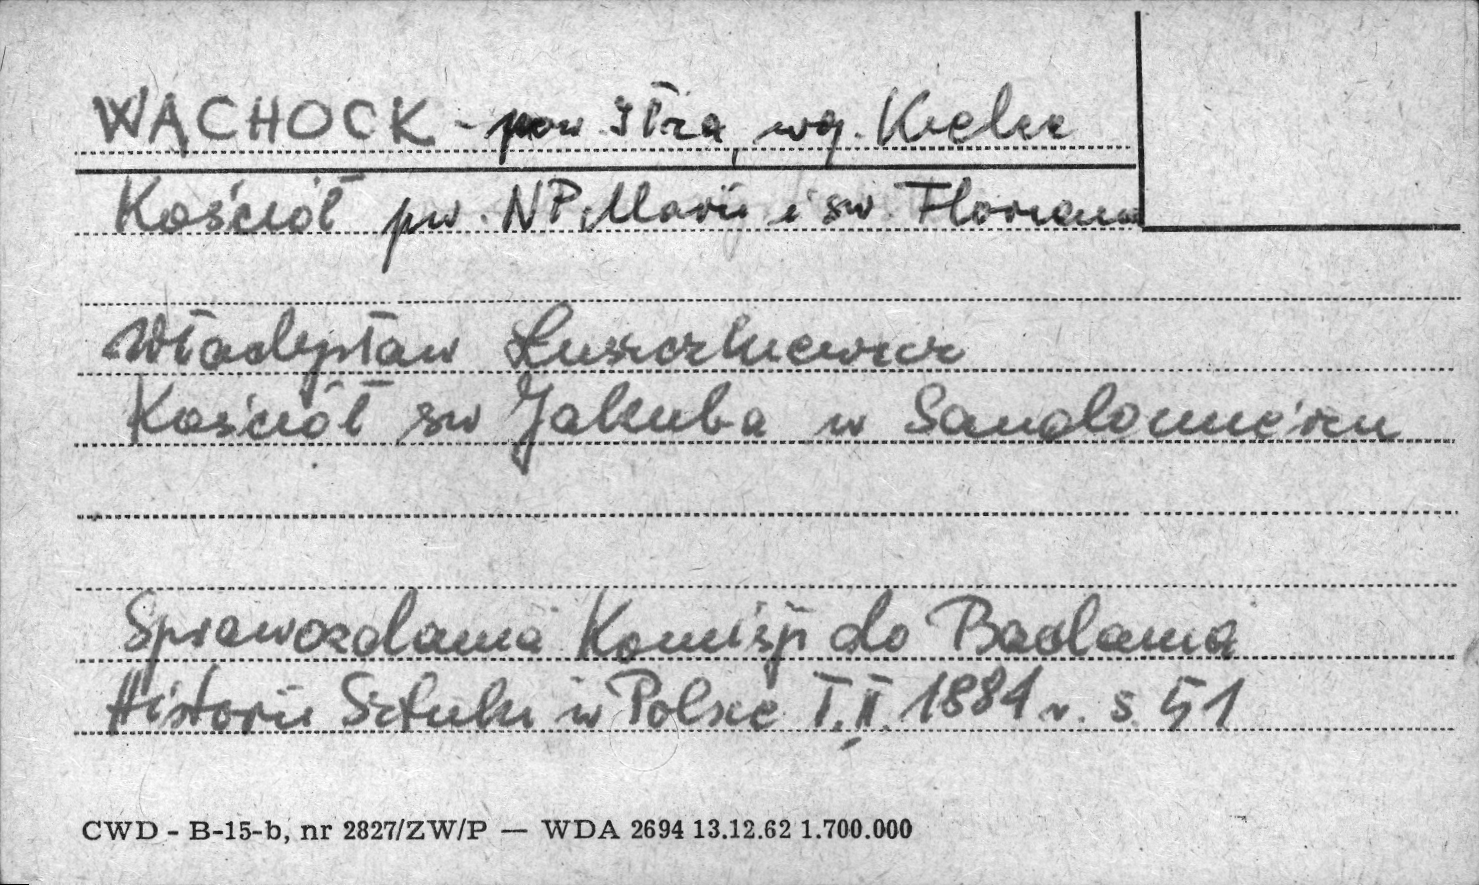 WĄCHOCK - pow Iłża, wg. Kielce
Kościół pw. NP. Marii i św. Floriana
Władysław Łuszczkiewicz
Kościół św Jakuba w Sandomierzu
Sprawozdania Komisji do Badania
Historii Sztuki w Polsce T. II. 1881 r. s 51
CWD - B-15-b, nr 2827/ZW/P — WDA 2694 13.12.62 1.700.000